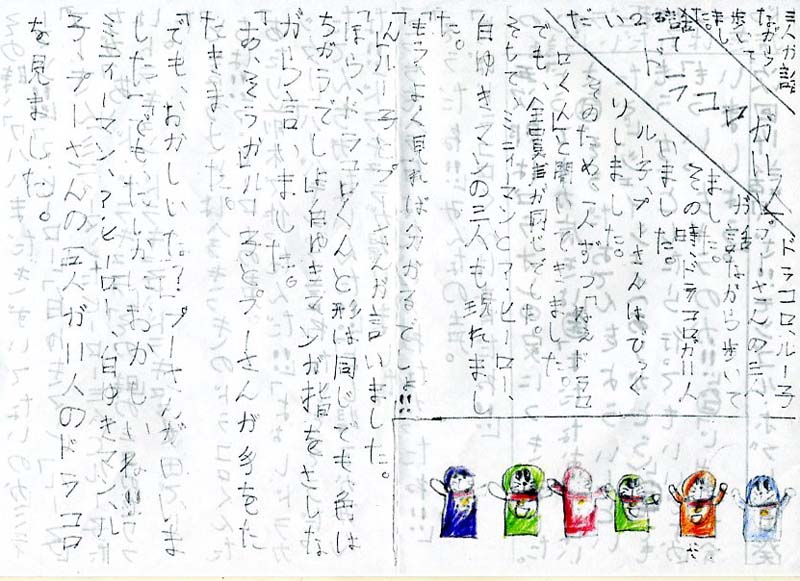 三人が話
ながら
歩いて
まし
た。
ドラコロが11人
ドラコロ、ルー子
プーさんの三人
が話ながら歩いて
ました。
その時、ドラコロが11人
いました。
ルー子、プーさんは、びっく
りしました。
そのため、一人ずつ「ねえドラコ
ロくん」と聞いてきました
でも、全員声が同じでした。
そして、ミティーマンとア・ヒーロー、
白ゆきマンの三人も現れまし
た。
「もう、よく見れば分かるでしょ!!
」ルー子とプーさんが言いました。
「ほら、ドラコロくんと形は同じでも、色は
ちがうでしょ」白ゆきマンが指をさしな
がら言いました。
「あ、そうか」ルー子とプーさんが手をた
たきました。
「でも、おかしいな?」プーさんが思いま
した「でも、たしかにおかしいね!!
ミティーマン、ア・ヒーロー、白ゆきマン、ル
ー子、プーさんの五人が11人のドラコロ
を見ました。